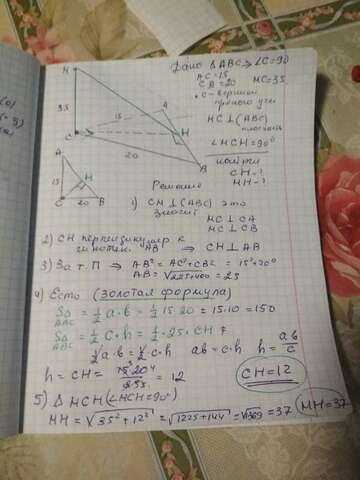 Дано ΔABC, ∠C=90
AC=15
CB=20 MC=35
•C-вершина
прямого угла
MC⊥(ABC)
плоскость
∠MCH=90°
найти
CH-?
MH-?
M
35
C
15
A
H
20
B
A
15
H
C 20 B
Решение
1) CM⊥(ABC) это
значит
MC⊥CA
MC⊥CB
2) CH перпендикуляр к
гипотен. AB ⇒ CH⊥AB
3) За т. П ⇒ AB²=AC²+CB²=15²+20²
AB=√225+400=25
4) Есть (золотая формула)
SΔ ABC = 1/2 a·b = 1/2 15·20=15·10=150
SΔ ABC = 1/2 c·h = 1/2·25·CH
1/2 a·b=1/2 c·h ab=c·h h=ab/c
h=CH= = 12
CH=12
5) Δ MCH (∠MCH=90°)
MH=√35²+12²=√1225+144=√1369=37
MH=37